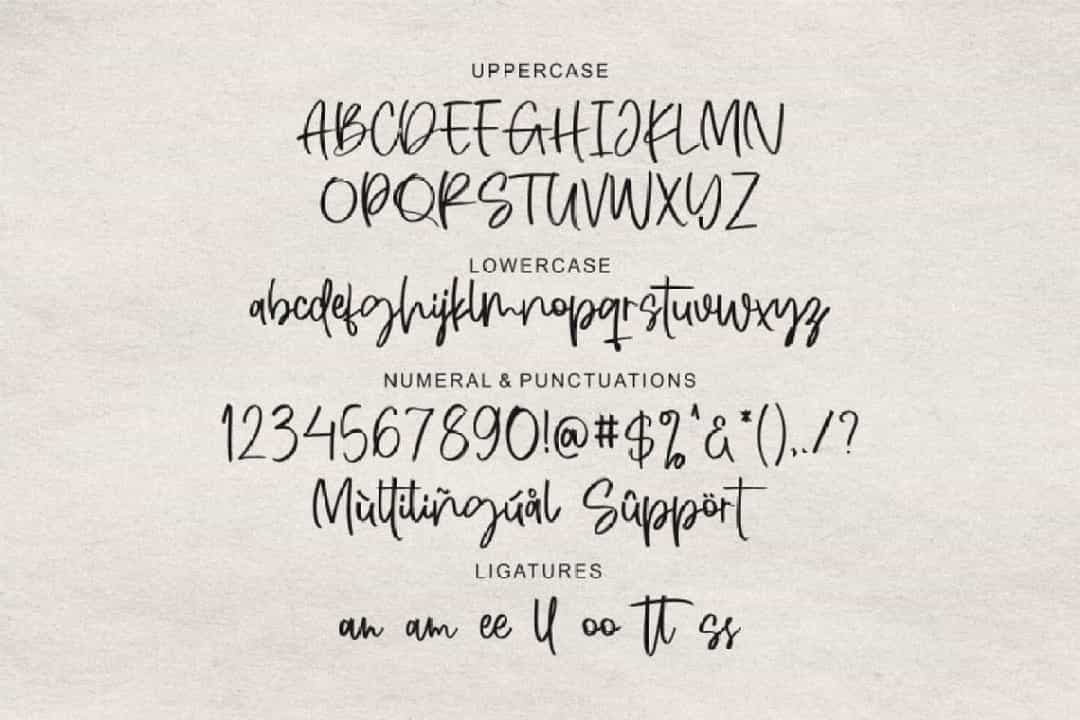 UPPERCASE
ABCDEFGHIJKLMN
OPQRSTUVWXYZ
LOWERCASE
abcdefghijklmnopqrstuvwxyz
NUMERAL & PUNCTUATIONS
1234567890!@#$%^&*(),./?
Mùltiliñgúål Sûppört
LIGATURES
an am ee ll oo tt ss